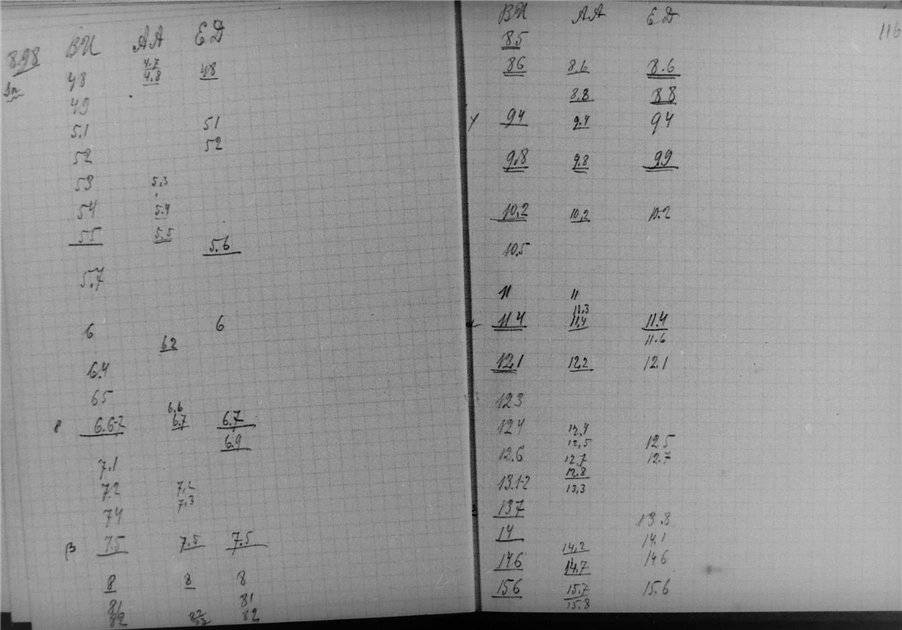 ВИ АА ЕД
898
4.7
48 4.8 48
49
5.1 51
52 52
53 5.3
54 5.4
55 5.5
5.6
5.7
6 6
62
6.4
65
6.6
6.6-7 6.7 6.7
6.9
7.1
7.2 7.2
74 7.3
β 7.5 7.5 7.5
8 8 8
81 81
82 82
ВИ АА ЕД
116
85
86 8.6 8.6
8.8 88
γ 94 9.4 94
9.8 9.8 99
10,2 10,2 10.2
10.5
11 11
11,3
11.4 11,4 11.4
11.6
12.1 12,2 12.1
12.3
124 12,4
12,5 12.5
12.6 12,7 12.7
12,8
13.1-2 13,3
137
13.8
14 14.1
14,2
146 14,7 14.6
156 15.7 15.6
15.8